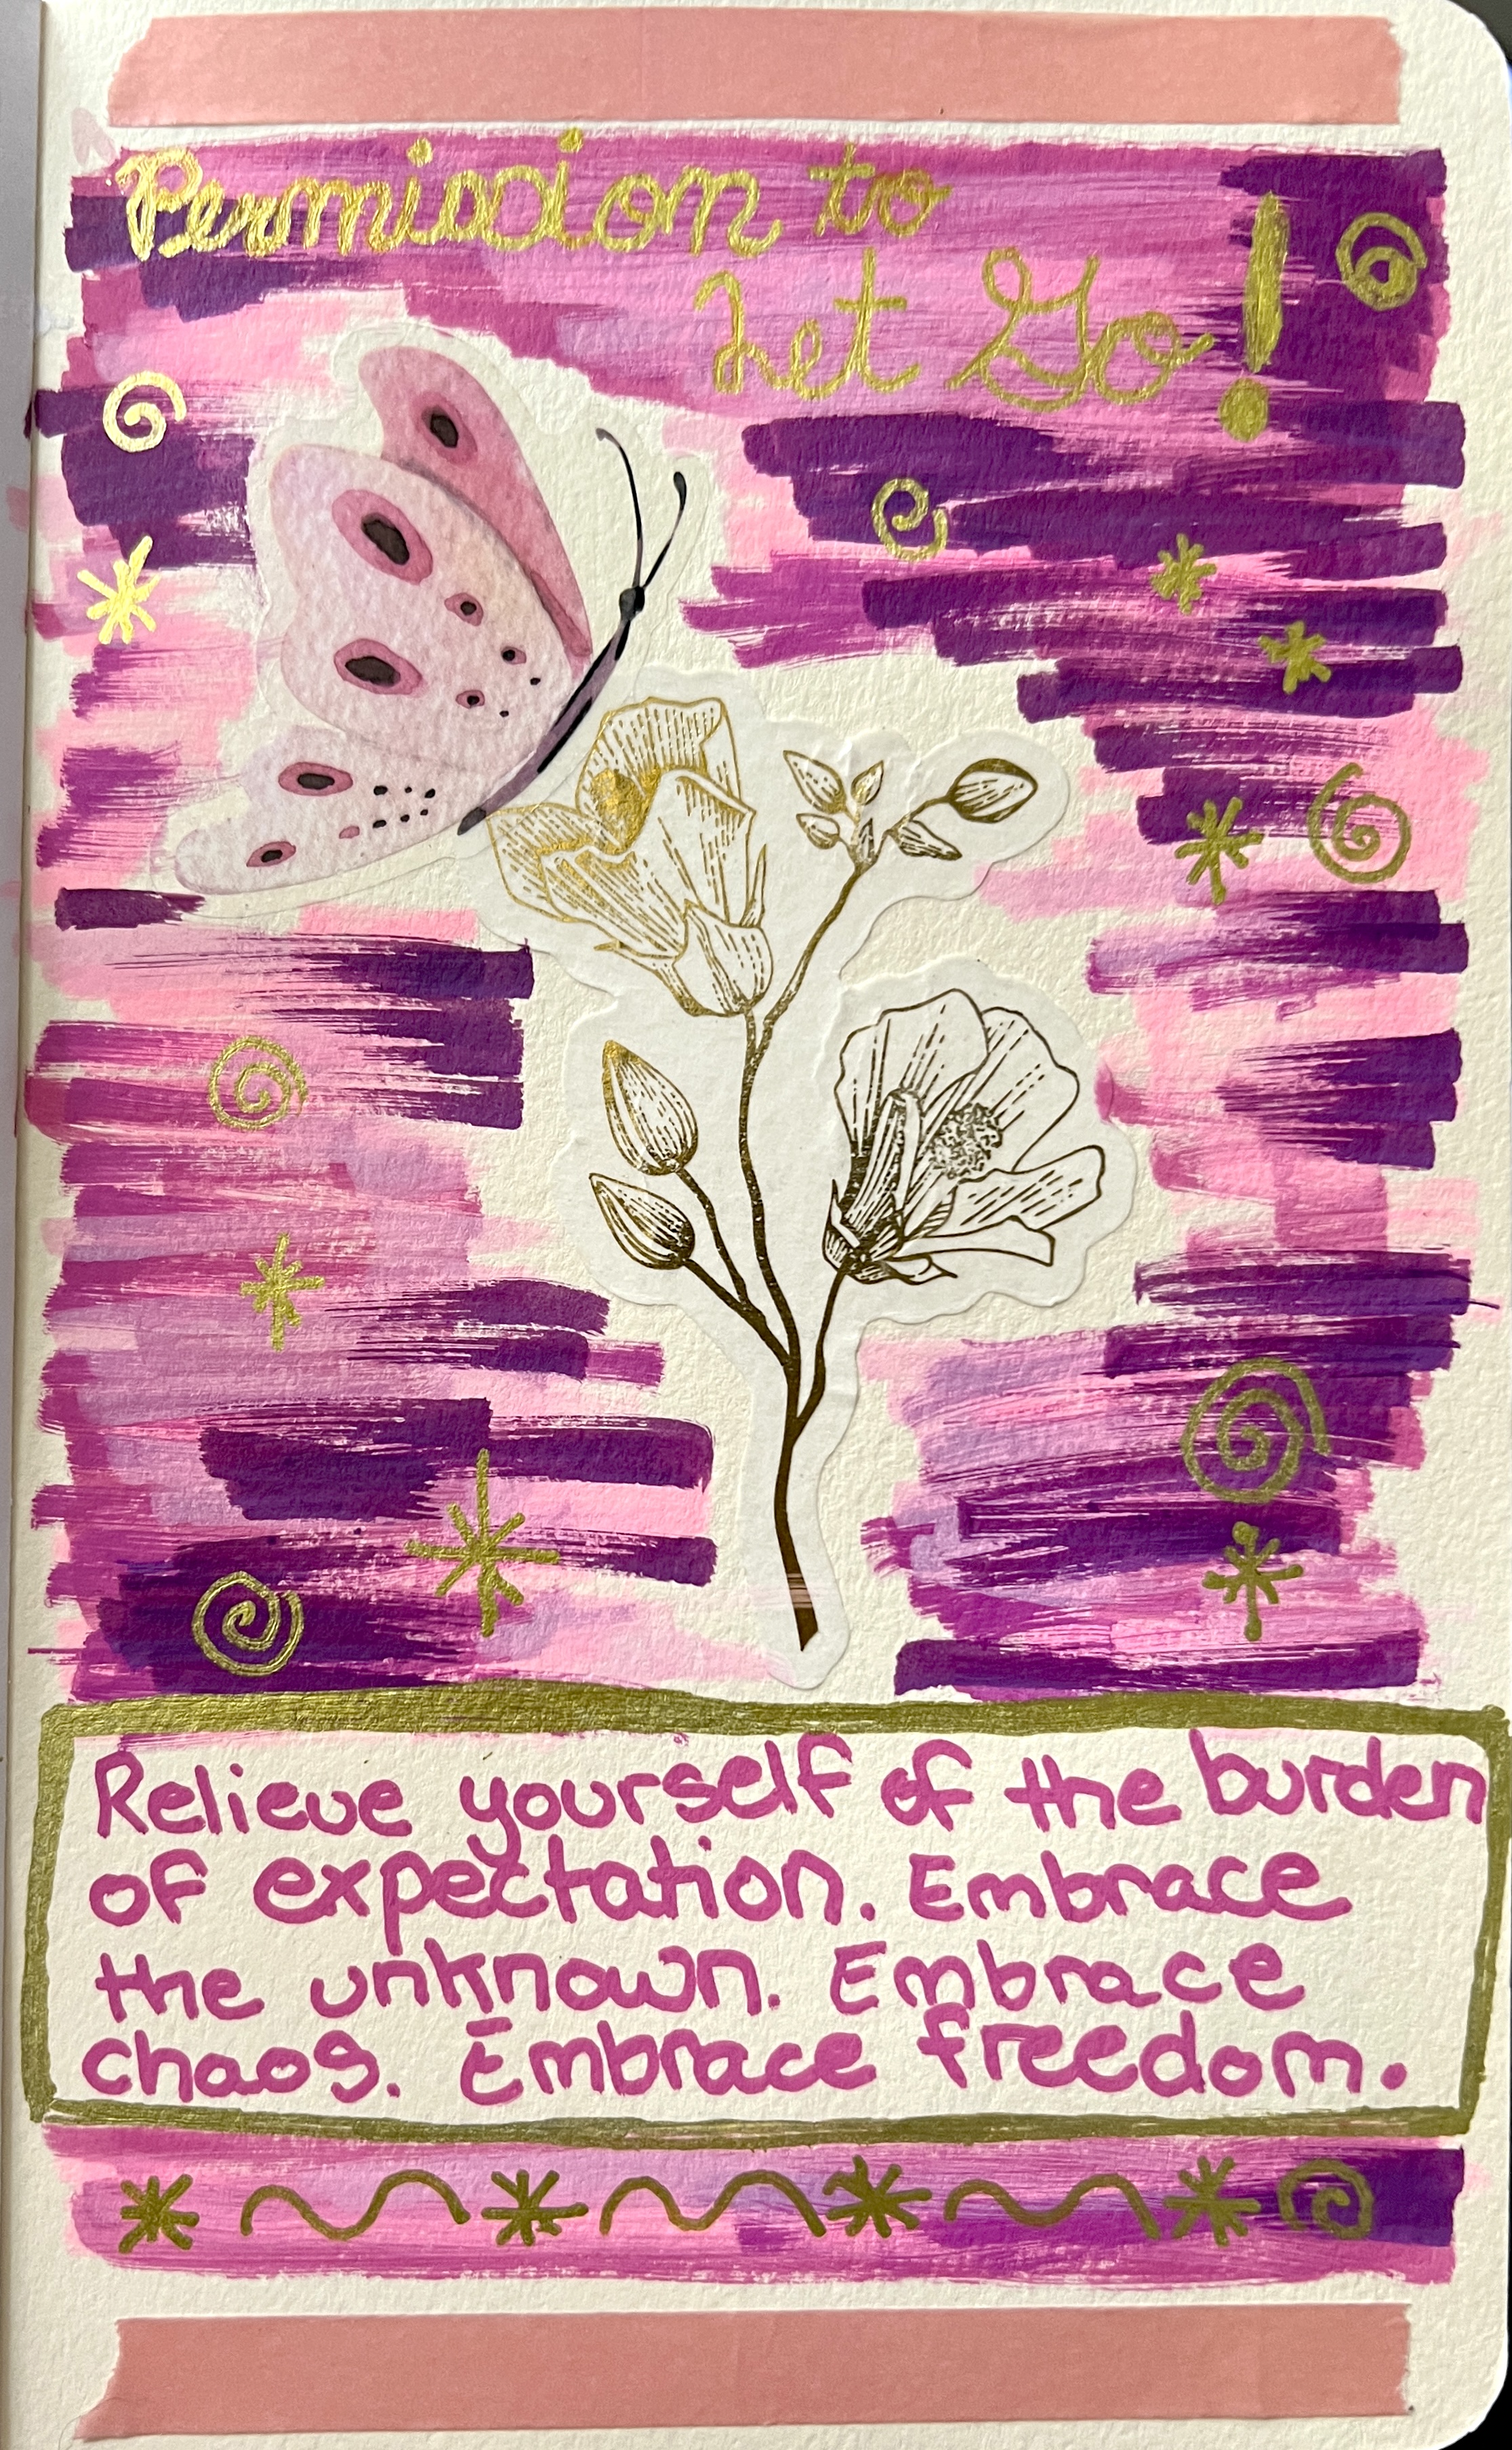 Permission to
Let Go!
Relieve yourself of the burden
of expectation. Embrace
the unknown. Embrace
chaos. Embrace freedom.